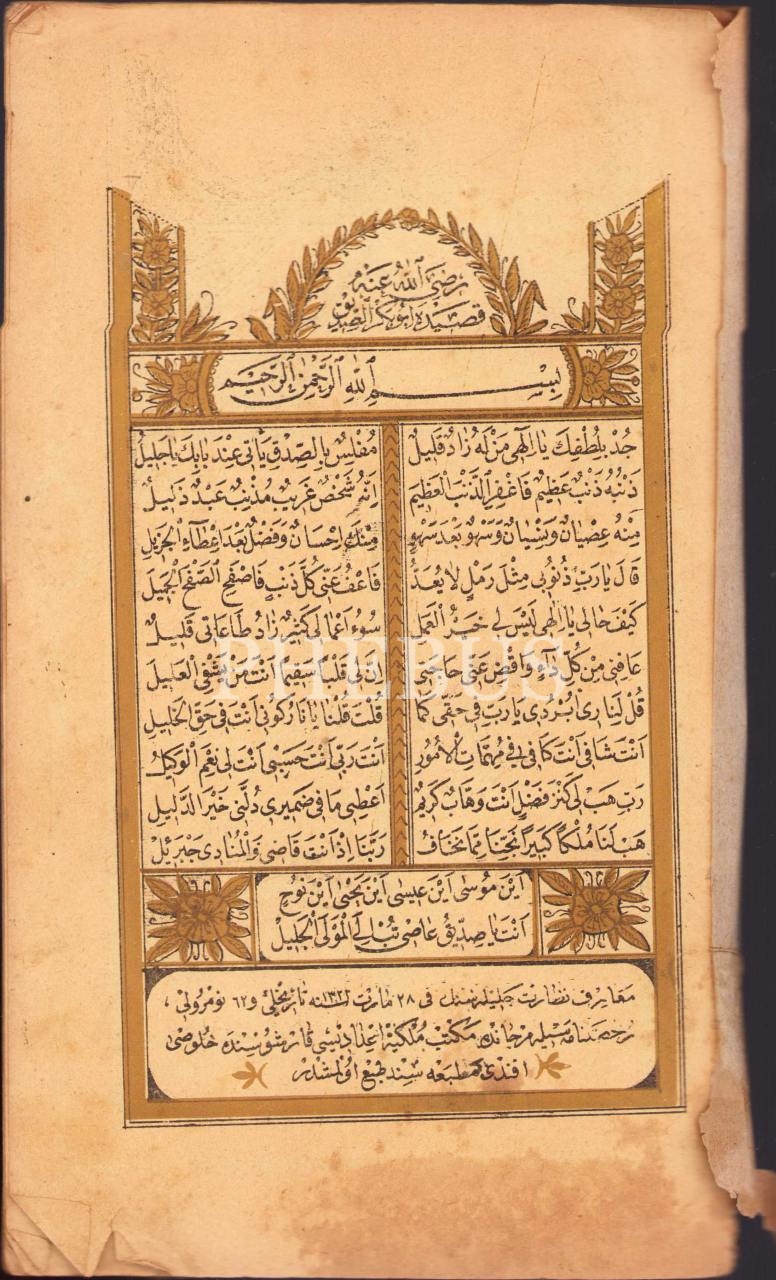 رضي الله عنه
قصيده ابو بكر الصديق
بسم الله الرحمن الرحيم
جد بلطفك يا الهي من له زاد قليل مفلس بالصدق يأتي عند بابك يا جليل
ذنبه ذنب عظيم فاغفر الذنب العظيم انه شخص غريب مذنب عبد ذليل
منه عصيان ونسيان وسهو بعد سهو منك احسان وفضل بعد اعطاء الجزيل
قال يا رب ذنوبي مثل رمل لا يعد فاعف عني كل ذنب فاصفح الصفح الجميل
كيف حالي يا الهي ليس لي خير العمل سوء اعمالي كثير زاد طاعاتي قليل
عافني من كل داء واقض عني حاجتي ان لي قلبا سقيما انت من يشفي العليل
قل لناري ابردي يا رب في حقي كما قلت قلنا يا نار كوني انت في حق الخليل
انت شافي انت كافي في مهمات الامور انت ربي انت حسبي انت لي نعم الوكيل
رب هب لي كنز فضل انت وهاب كريم اعطني ما في ضميري دلني خير الدليل
هب لنا ملكا كبيرا نجنا مما نخاف ربنا اذ انت قاضي والمنادي جبرئيل
اين موسى اين عيسى اين يحيى اين نوح
انت يا صديق عاصي تب الى المولى الجليل
معارف نظارت جليله سنك في ٢٨ مارت سنه ١٣٢٢ تاريخلي و ٦٢ نومرولي
رخصتنامه سيله مرجانده مكتب ملكيه اعداديسي قارشوسنده خلوصي
افندي مطبعه سنده طبع اولمشدر
PHEBUS